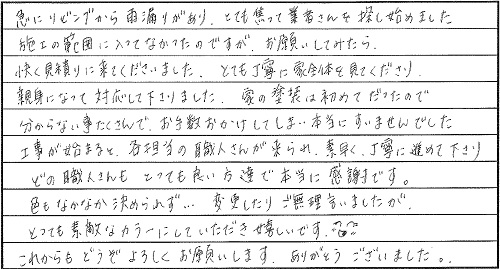 急にリビングから雨漏りがあり、とても焦って業者さんを探し始めました
施工の範囲に入ってなかったのですが、お願いしてみたら、
快く見積りに来てくださいました。とても丁寧に家全体を見てくださり、
親身になって対応して下さりました。家の塗装は初めてだったので
分からない事たくさんで、お手数おかけしてしまい本当にすいませんでした
工事が始まると、各担当の職人さんが来られ、素早く、丁寧に進めて下さり
どの職人さんも とっても良い方達で本当に感謝です。
色もなかなか決められず… 変更したりご無理言いましたが、
とっても素敵なカラーにしていただき嬉しいです。
これからもどうぞよろしくお願いします。ありがとうございました。